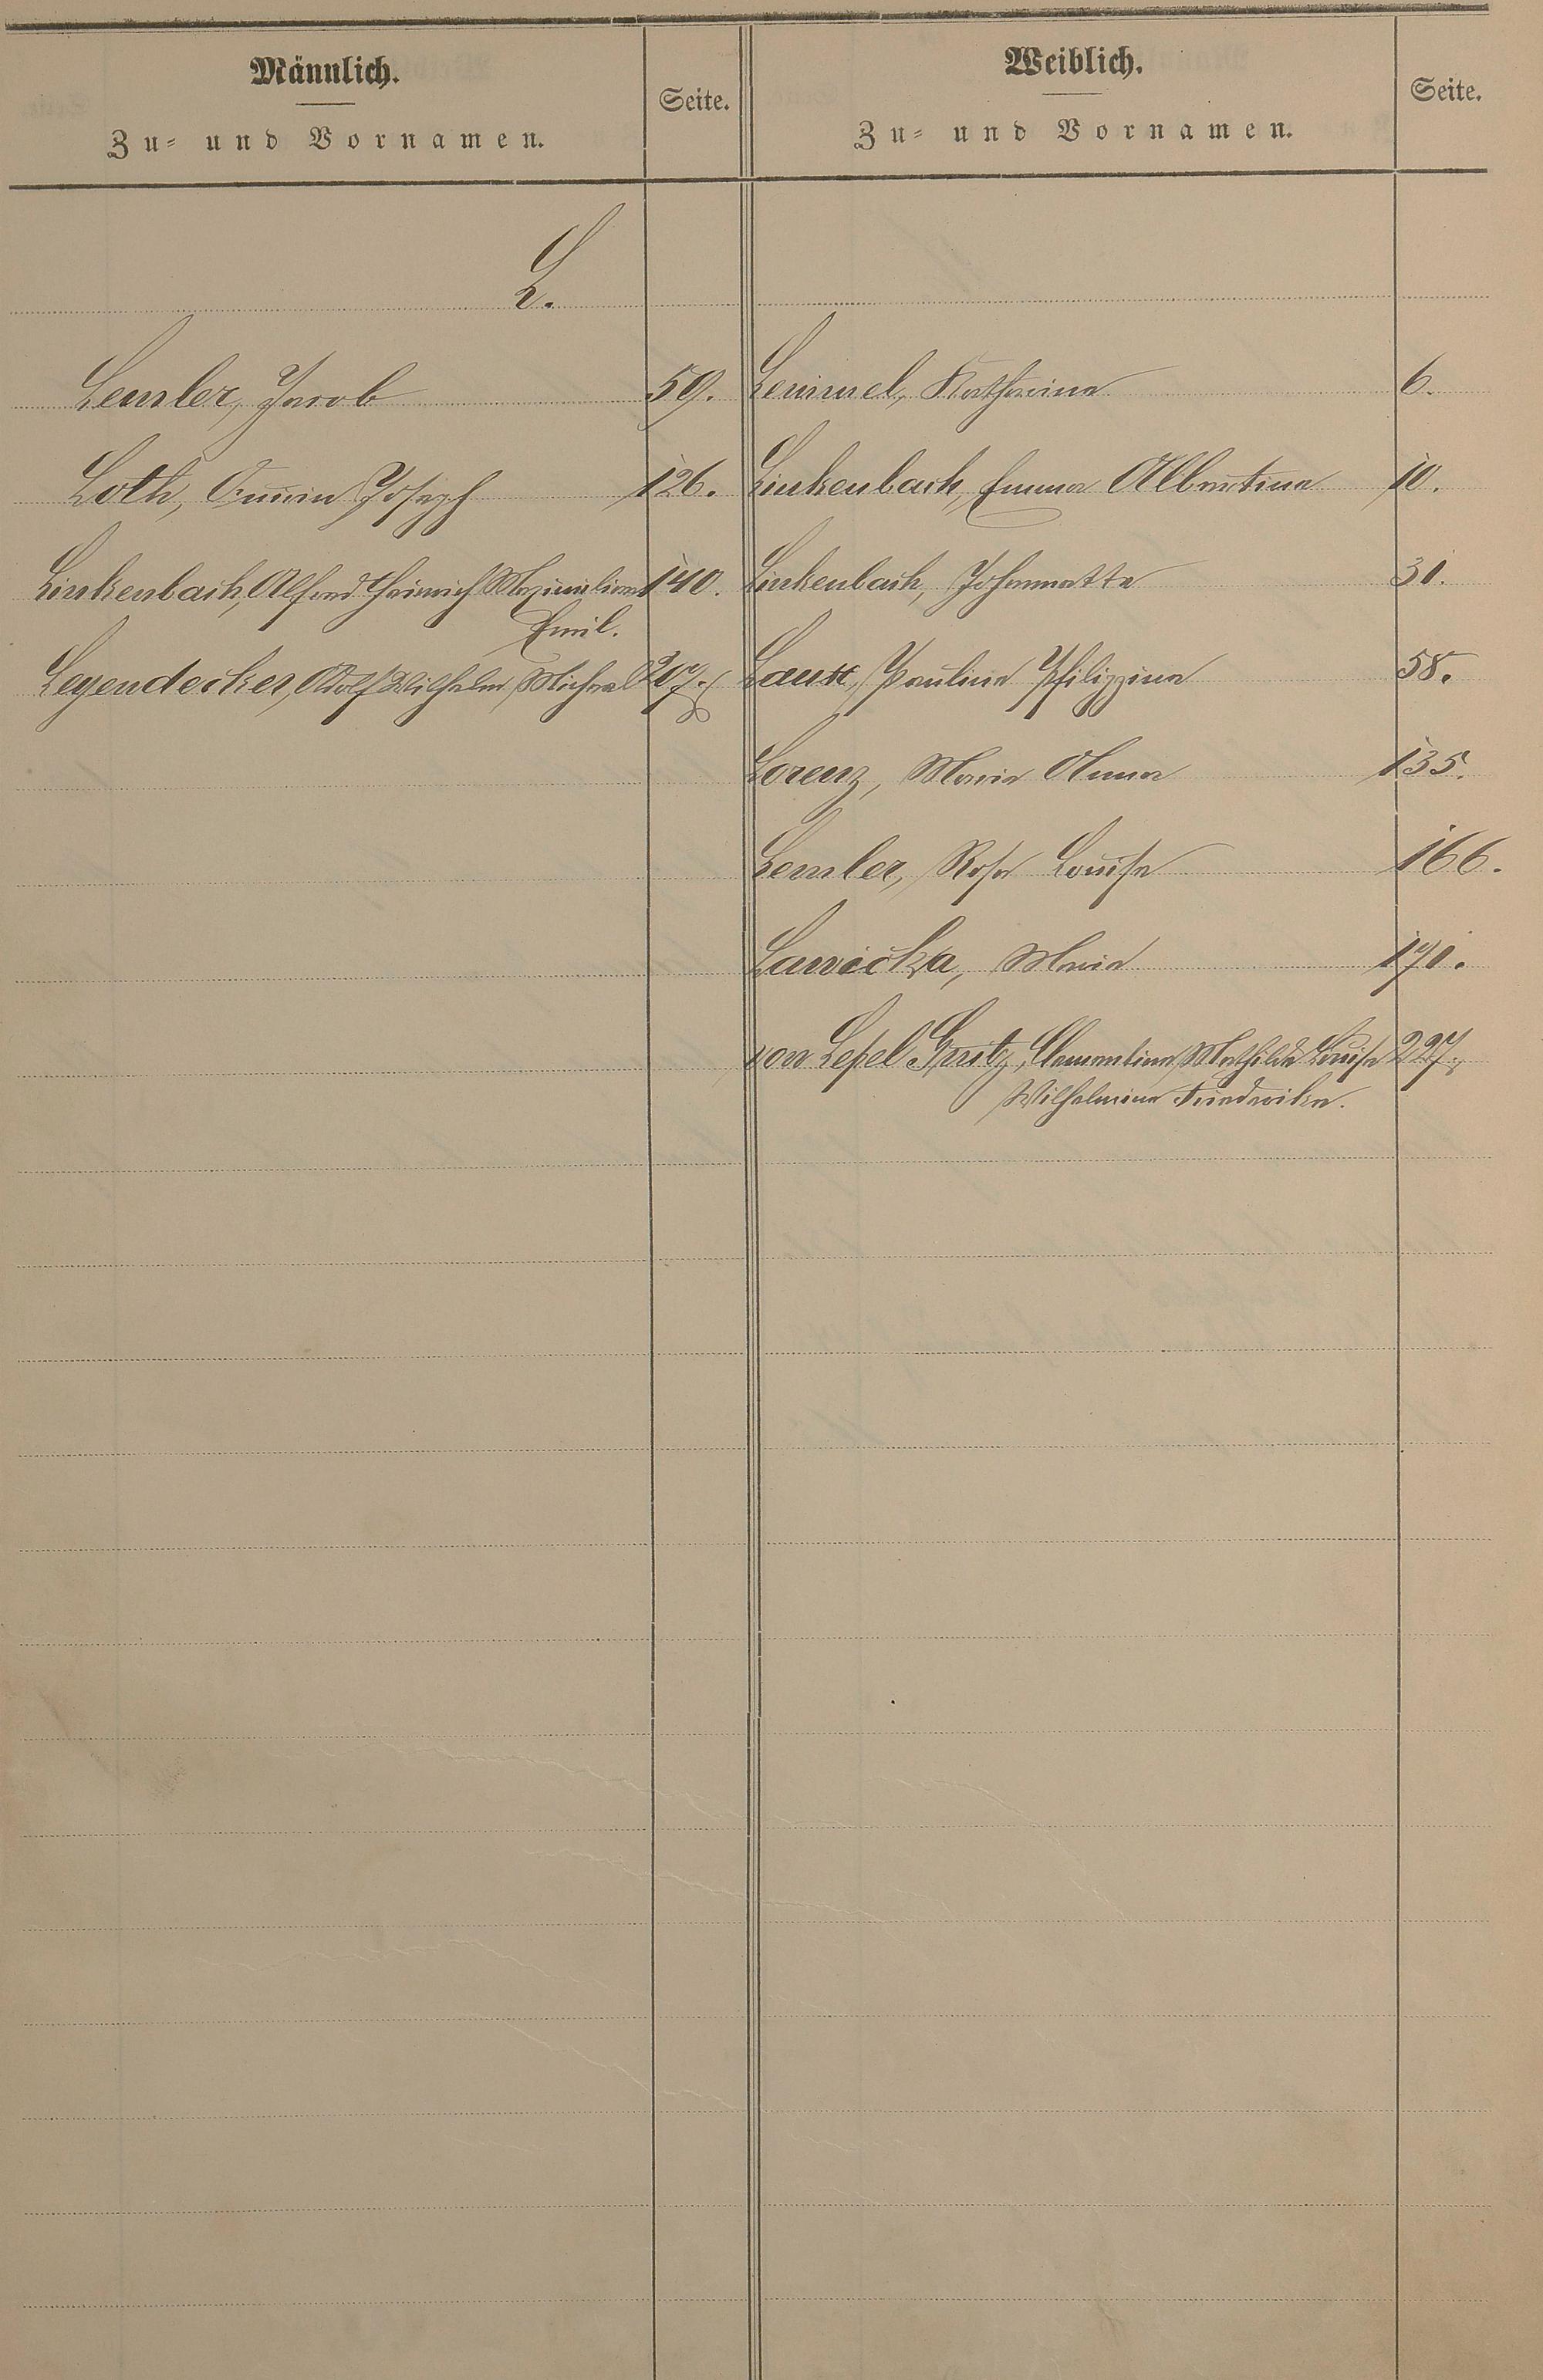 Männlich.
Zu- und Vornamen.
Seite.
Weiblich.
Zu- und Vornamen.
Seite.
L.
Lemler, Jacob 59.
Loth, Quirin Joseph 126.
Linkenbach, Alfred Heinrich Maximilian 140.
Emil.
Leyendecker, Adolf Wilhelm Michael 207.
Lemmel, Katharina 6.
Linkenbach, Emma Albertina 10.
Linkenbach, Johannatte 31.
Laux, Paulina Philippina 58.
Lorenz, Maria Anna 135.
Lemler, Rosa Louise 166.
Lawicka, Maria 171.
von Lepel Gnitz, Clementine Mathilde Louise 227.
Wilhelmine Friederike.